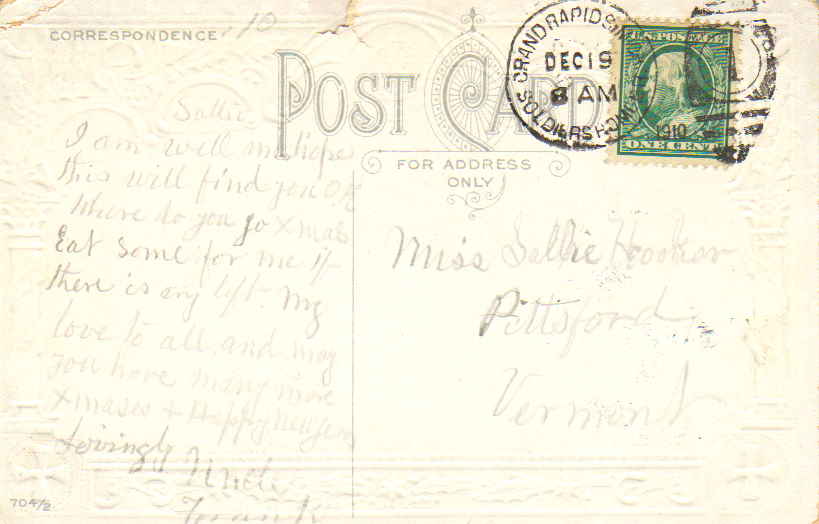 CORRESPONDENCE
POST CARD
FOR ADDRESS
ONLY
GRAND RAPIDS
DEC 19
8 AM
1910
SOLDIERS HOME
U.S. POSTAGE
Sallie.
I am well
this will find you O.K
Where do you go Xmas
Eat some for me if
there is any left. My
love to all, and may
you have many more
Xmases + Happy New Years
Lovingly
Uncle
Frank
Miss Sallie Hooker
Pittsford
Vermont
704/2